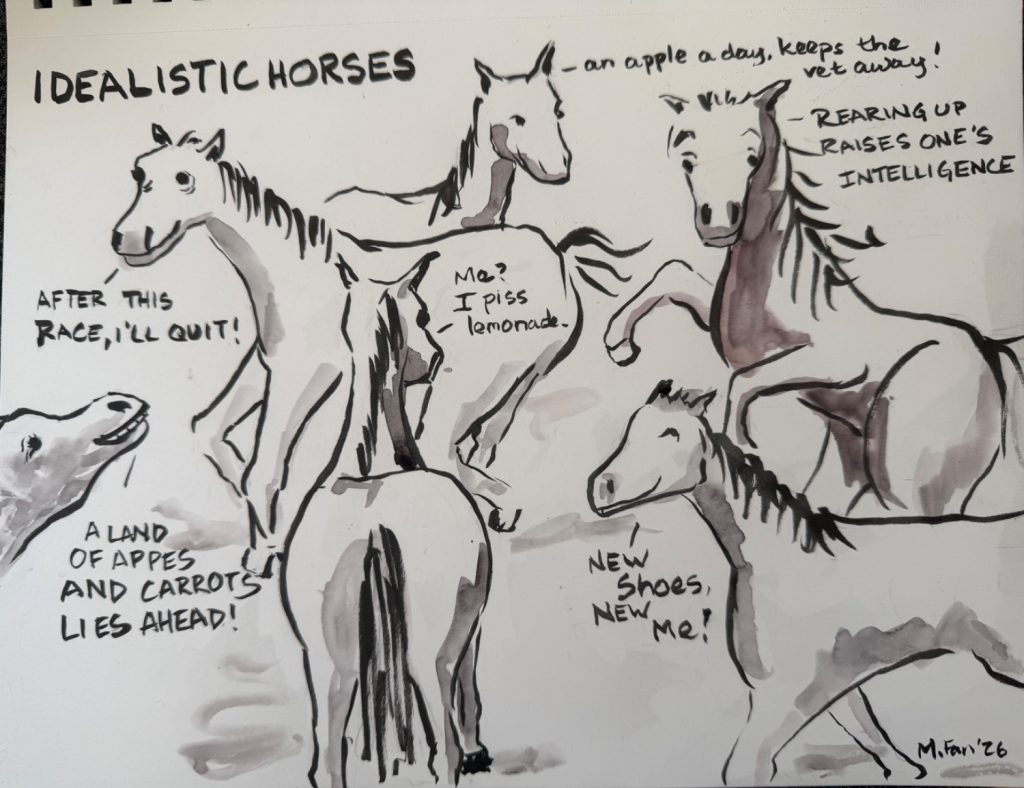 IDEALISTIC HORSES
an apple a day, keeps the
vet away!
REARING UP
RAISES ONE'S
INTELLIGENCE
AFTER THIS
RACE, I'LL QUIT!
Me?
I piss
lemonade.
A LAND
OF APPES
AND CARROTS
LIES AHEAD!
NEW
Shoes,
NEW
Me!
M. Fan '26